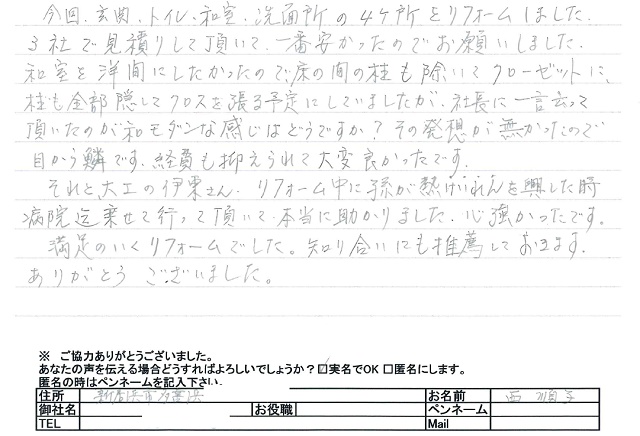 今回、玄関、トイレ、和室、洗面所の4ケ所をリフォームしました。
3社で見積りして頂いて、一番安かったのでお願いしました。
和室を洋間にしたかったので、床の間の柱も除いてクローゼットに、
柱も全部隠してクロスを張る予定にしていましたが、社長に一言云って
頂いたのが和モダンな感じはどうですか?その発想が無かったので
目から鱗です。経費も抑えられて大変良かったです。
それと大工の伊東さん、リフォーム中に孫が熱けいれんを興した時
病院迄乗せて行って頂いて、本当に助かりました。心強かったです。
満足のいくリフォームでした。知り合いにも推薦しておきます。
ありがとうございました。
※ ご協力ありがとうございました。
あなたの声を伝える場合どうすればよろしいでしょうか?☑実名でOK □匿名にします。
匿名の時はペンネームを記入下さい。
住所 新居浜市 お名前 西
御社名 お役職 ペンネーム
TEL Mail